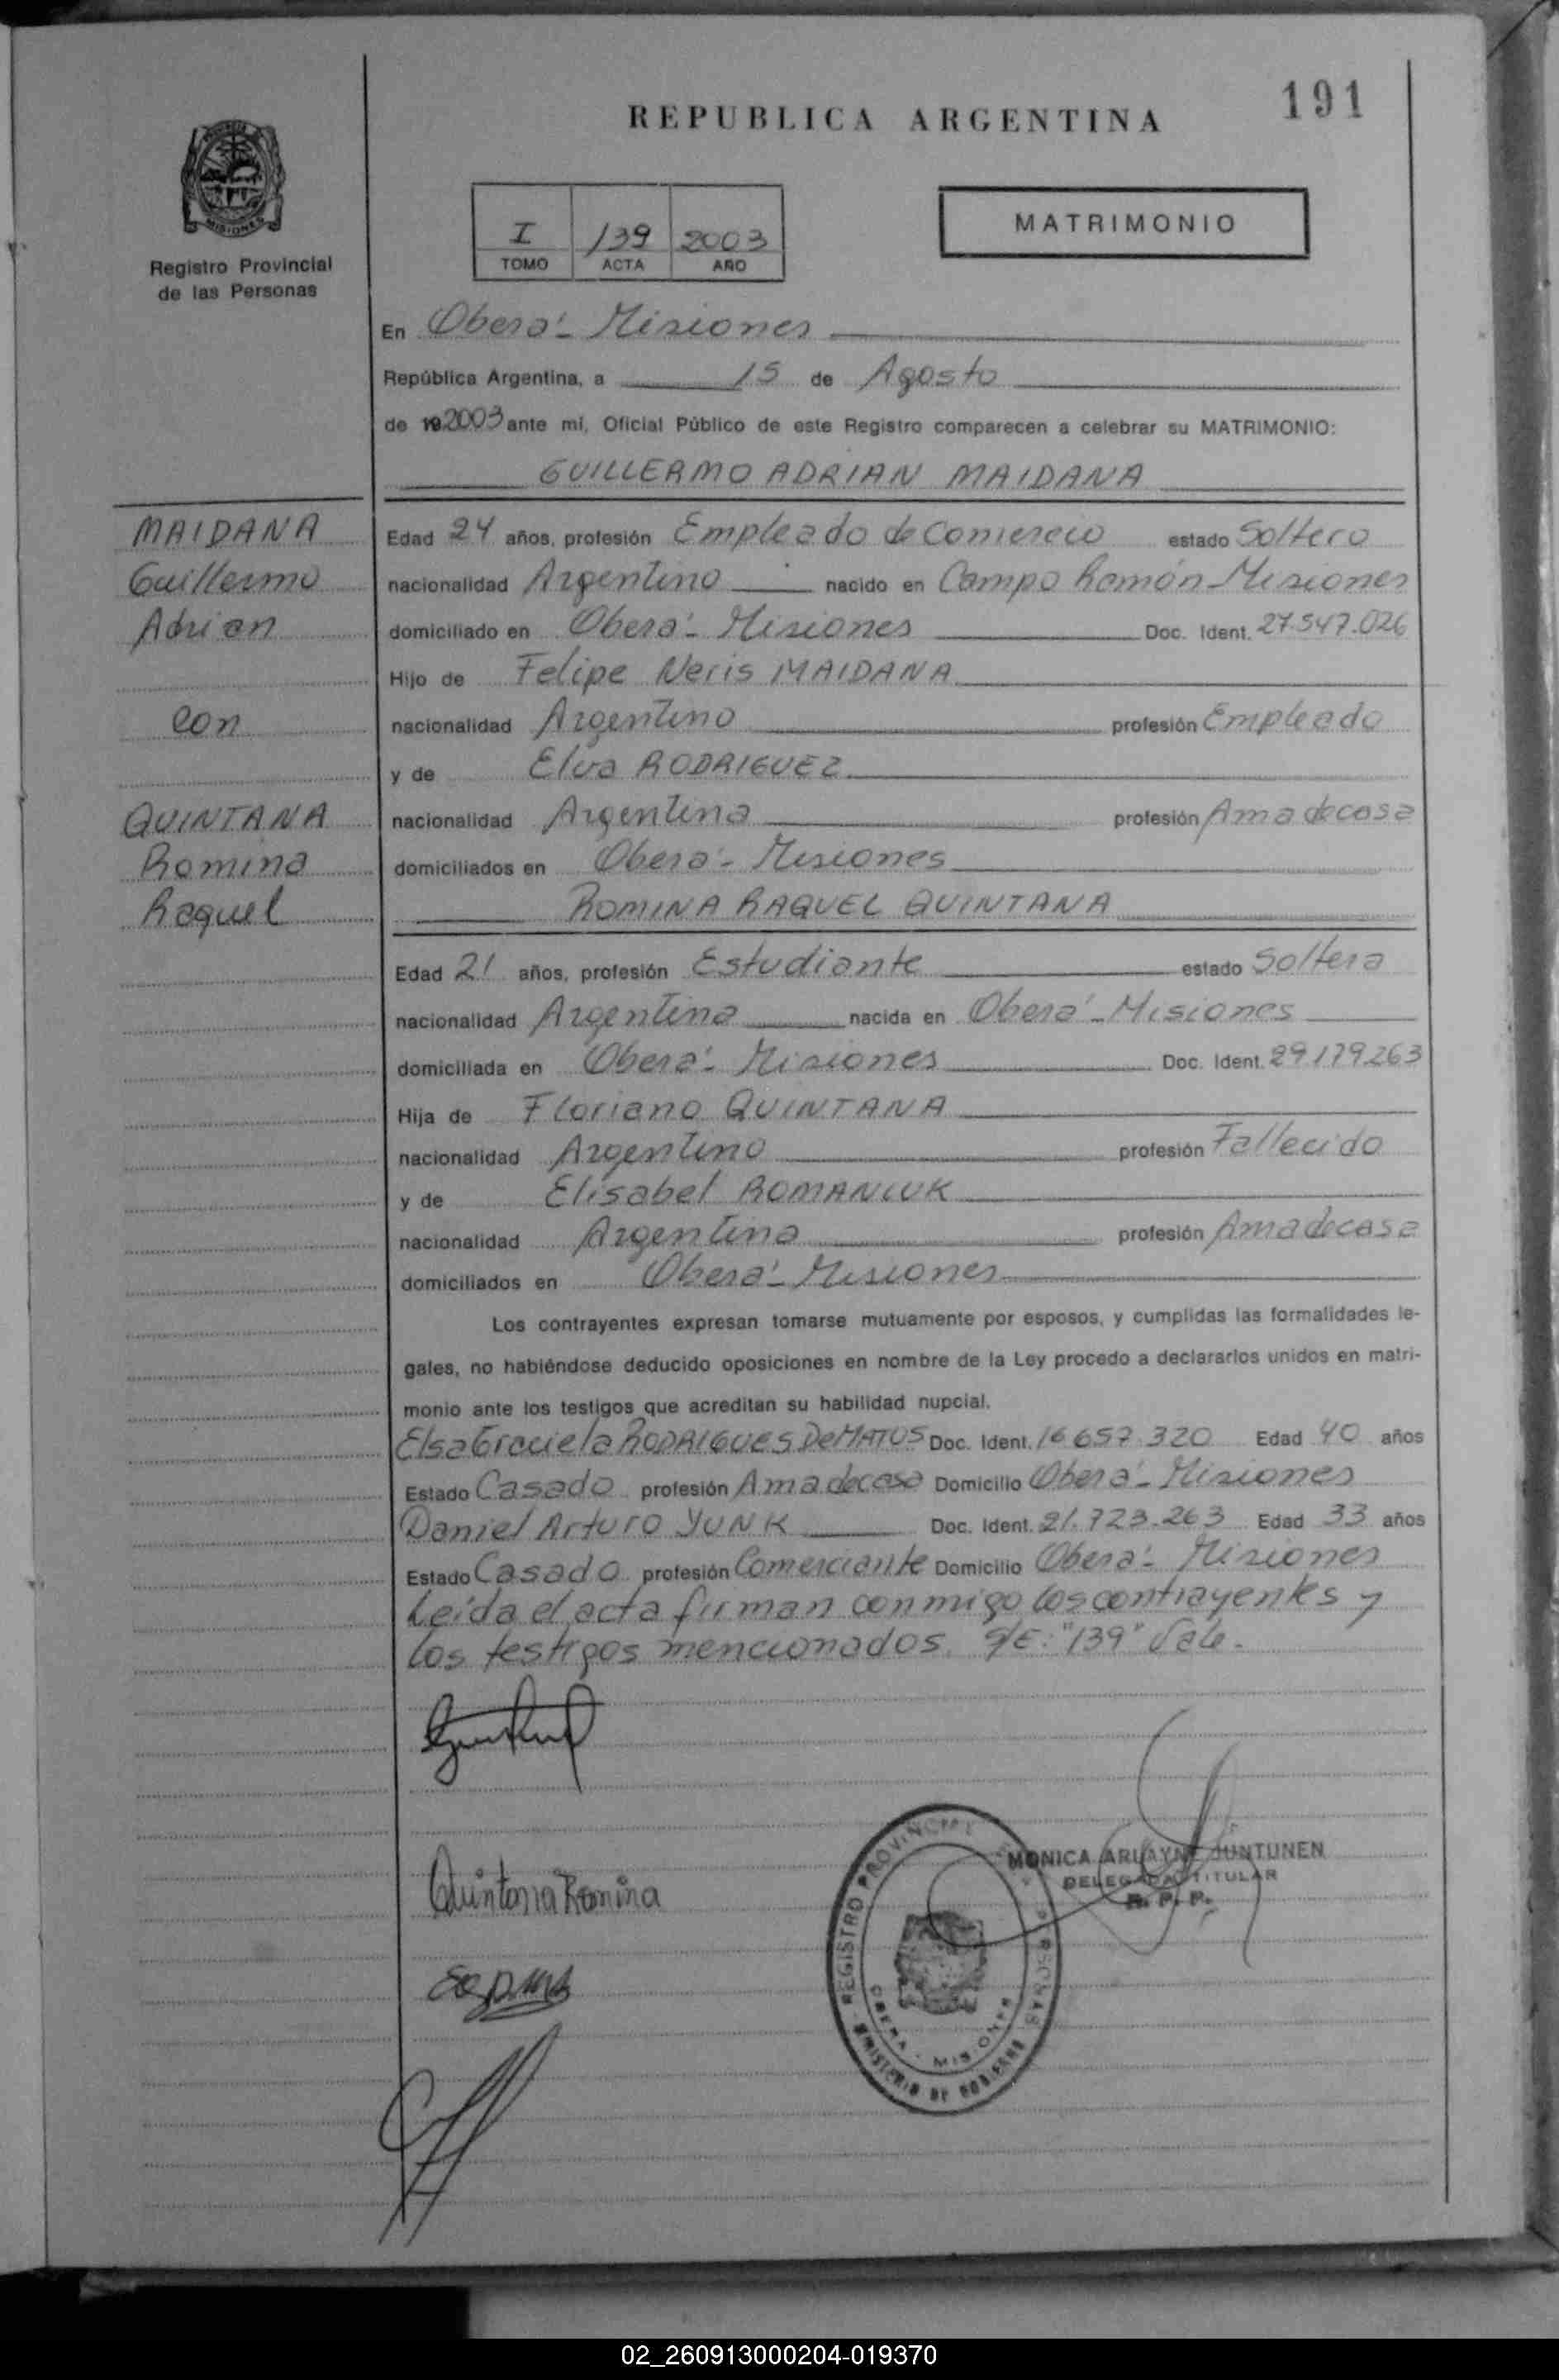 191
REPUBLICA ARGENTINA
MATRIMONIO
I 139 2003
TOMO ACTA AÑO
MISIONES
Registro Provincial
de las Personas
En Oberá - Misiones
República Argentina, a 15 de Agosto
de 19 2003 ante mí, Oficial Público de este Registro comparecen a celebrar su MATRIMONIO:
GUILLERMO ADRIAN MAIDANA
MAIDANA
Guillermo
Adrian
con
QUINTANA
Romina
Raquel
Edad 24 años, profesión Empleado de Comercio estado Soltero
nacionalidad Argentino nacido en Campo Ramón - Misiones
domiciliado en Oberá - Misiones Doc. Ident. 27.547.026
Hijo de Felipe Neris MAIDANA
nacionalidad Argentino profesión Empleado
y de Elva RODRIGUEZ
nacionalidad Argentina profesión Ama de casa
domiciliados en Oberá - Misiones
ROMINA RAQUEL QUINTANA
Edad 21 años, profesión Estudiante estado Soltera
nacionalidad Argentina nacida en Oberá - Misiones
domiciliada en Oberá - Misiones Doc. Ident. 29.179.263
Hija de Floriano QUINTANA
nacionalidad Argentino profesión Fallecido
y de Elisabel ROMANIUK
nacionalidad Argentina profesión Ama de casa
domiciliados en Oberá - Misiones
Los contrayentes expresan tomarse mutuamente por esposos, y cumplidas las formalidades le-
gales, no habiéndose deducido oposiciones en nombre de la Ley procedo a declararlos unidos en matri-
monio ante los testigos que acreditan su habilidad nupcial.
Elsa Graciela RODRIGUES De MATOS Doc. Ident. 16.657.320 Edad 40 años
Estado Casado profesión Ama de casa Domicilio Oberá - Misiones
Daniel Arturo YUNK Doc. Ident. 21.723.263 Edad 33 años
Estado Casado profesión Comerciante Domicilio Oberá - Misiones
Leída el acta firman conmigo los contrayentes y
los testigos mencionados. S/E: "139" Vale.
Quintana Romina
MONICA JUNTUNEN
DELEGADA TITULAR
R. P. P.
REGISTRO PROVINCIAL PERSONAS
OBERA - MISIONES
MINISTERIO DE GOBIERNO
02_260913000204-019370